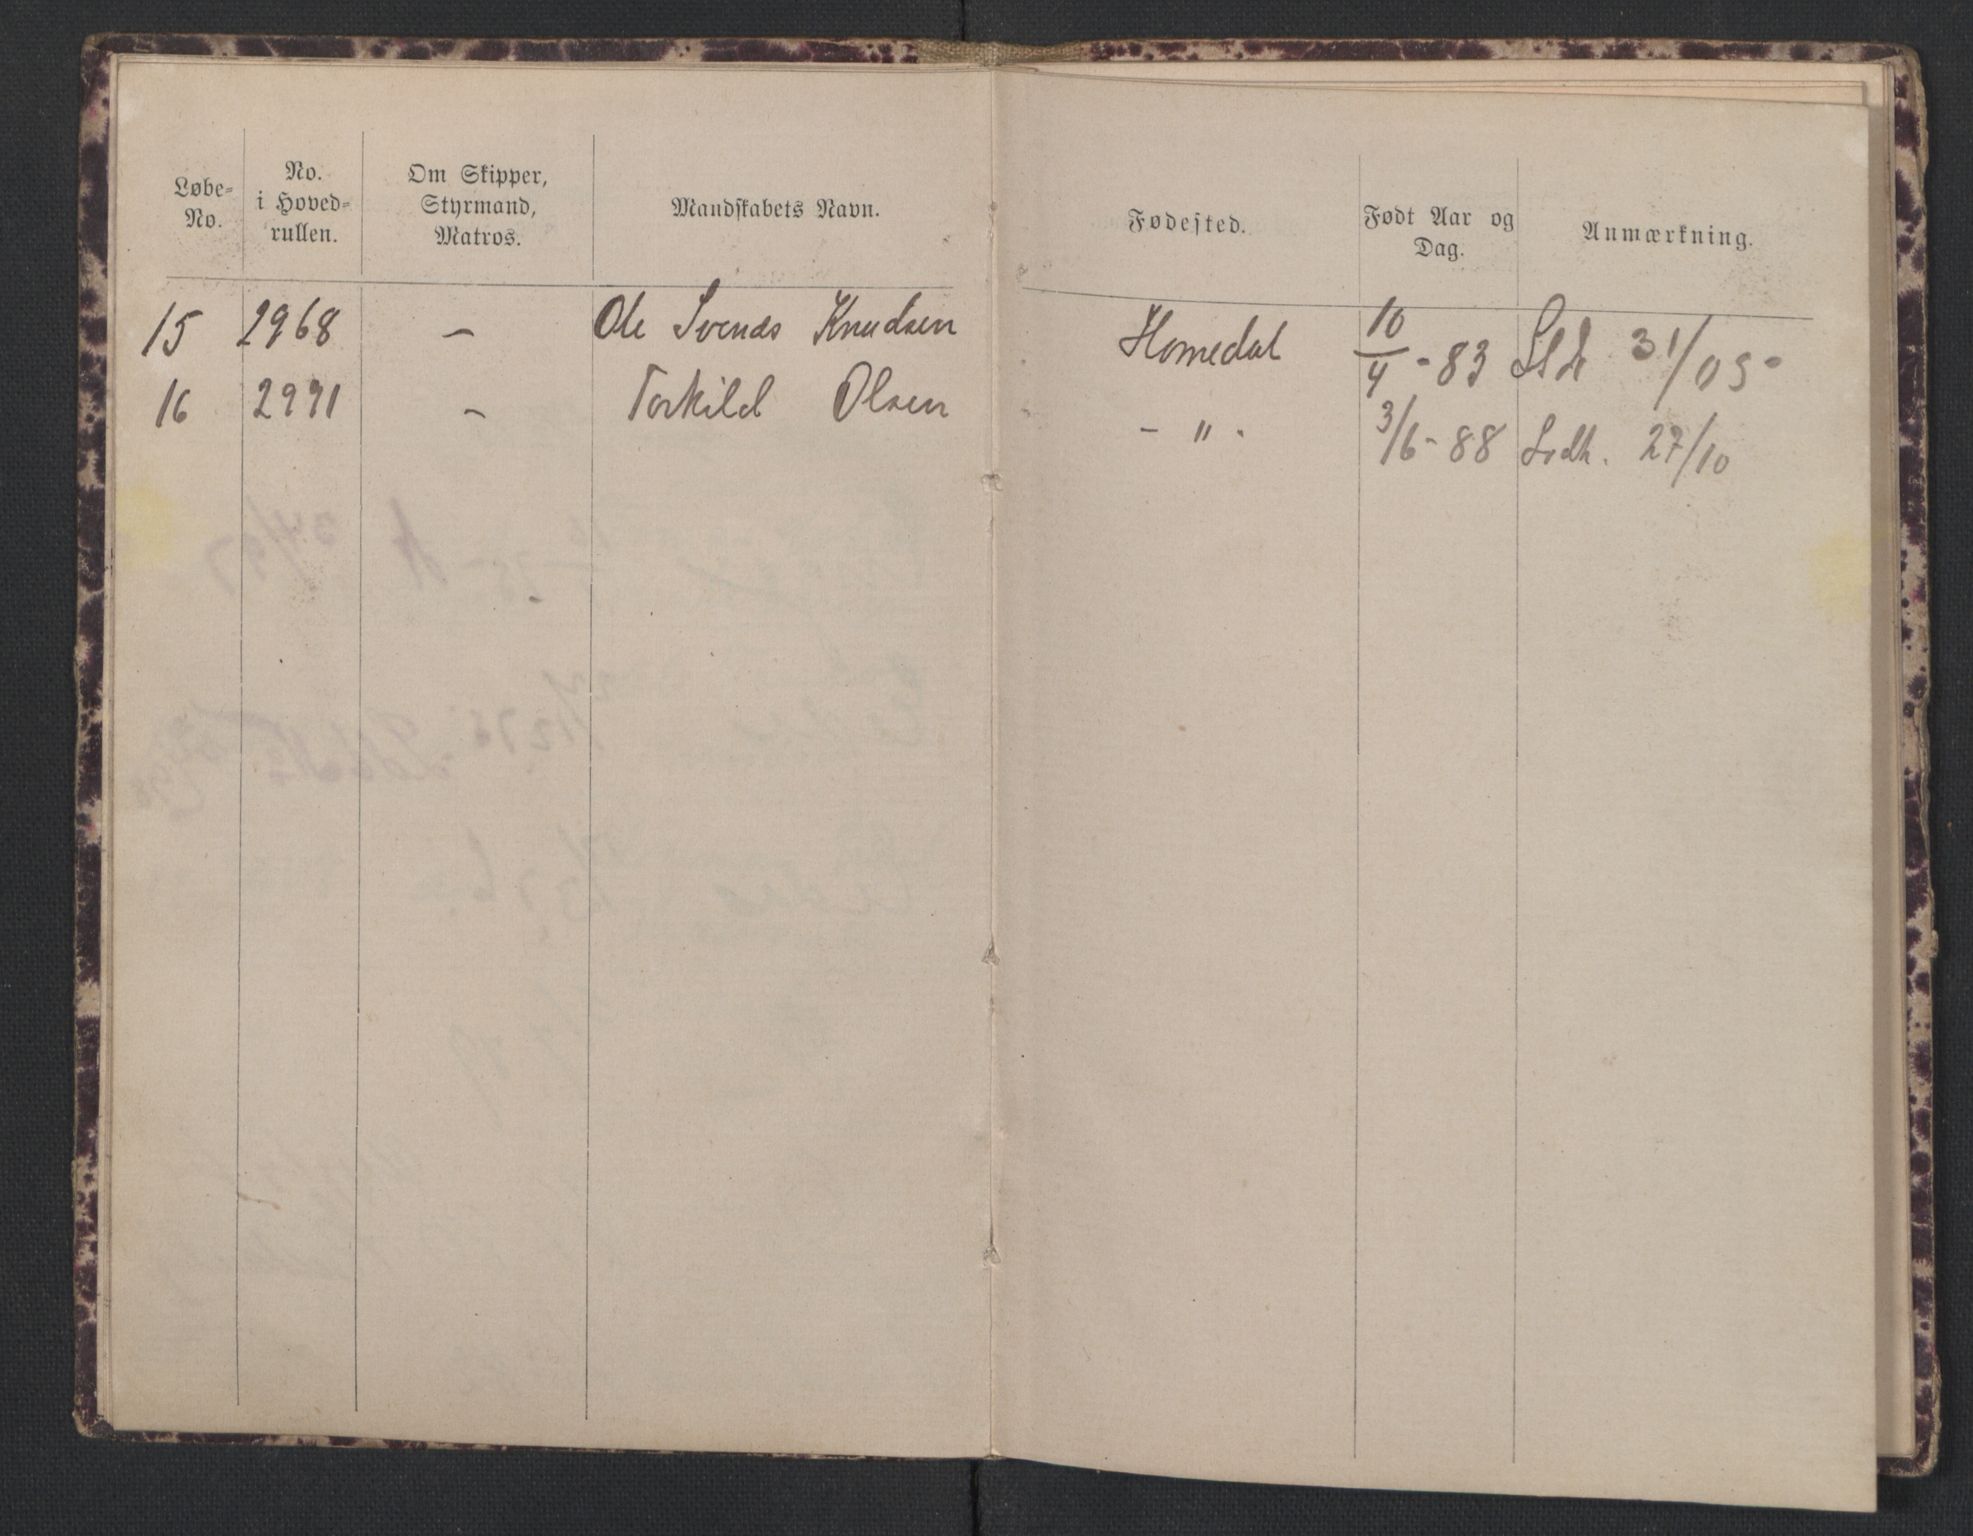 Løbe-No. No. i Hoved-rullen. Om Skipper, Styrmand, Matros. Mandskabets Navn. Fødested. Født Aar og Dag. Anmærkning.
15 2968 – Ole Svends Knudsen Homedal 10/4 - 83 31/05
16 2991 – Torkild Olsen – " - 3/6 - 88 27/10